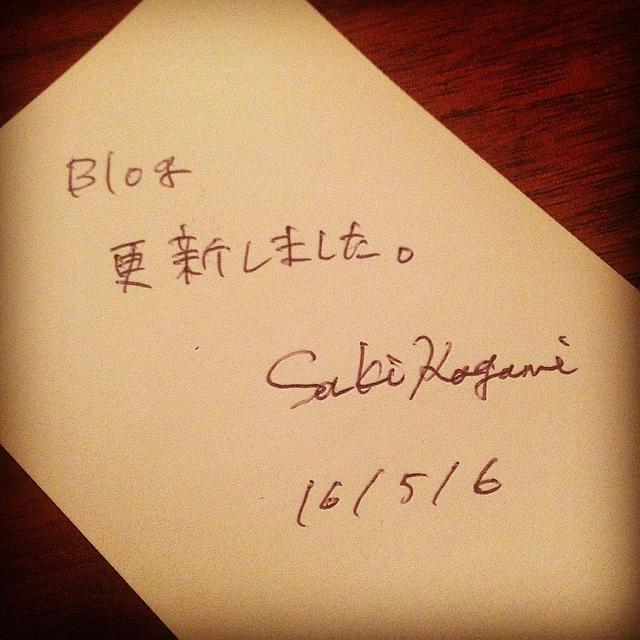 Blog
更新しました。
Saki Kagami
16/5/6